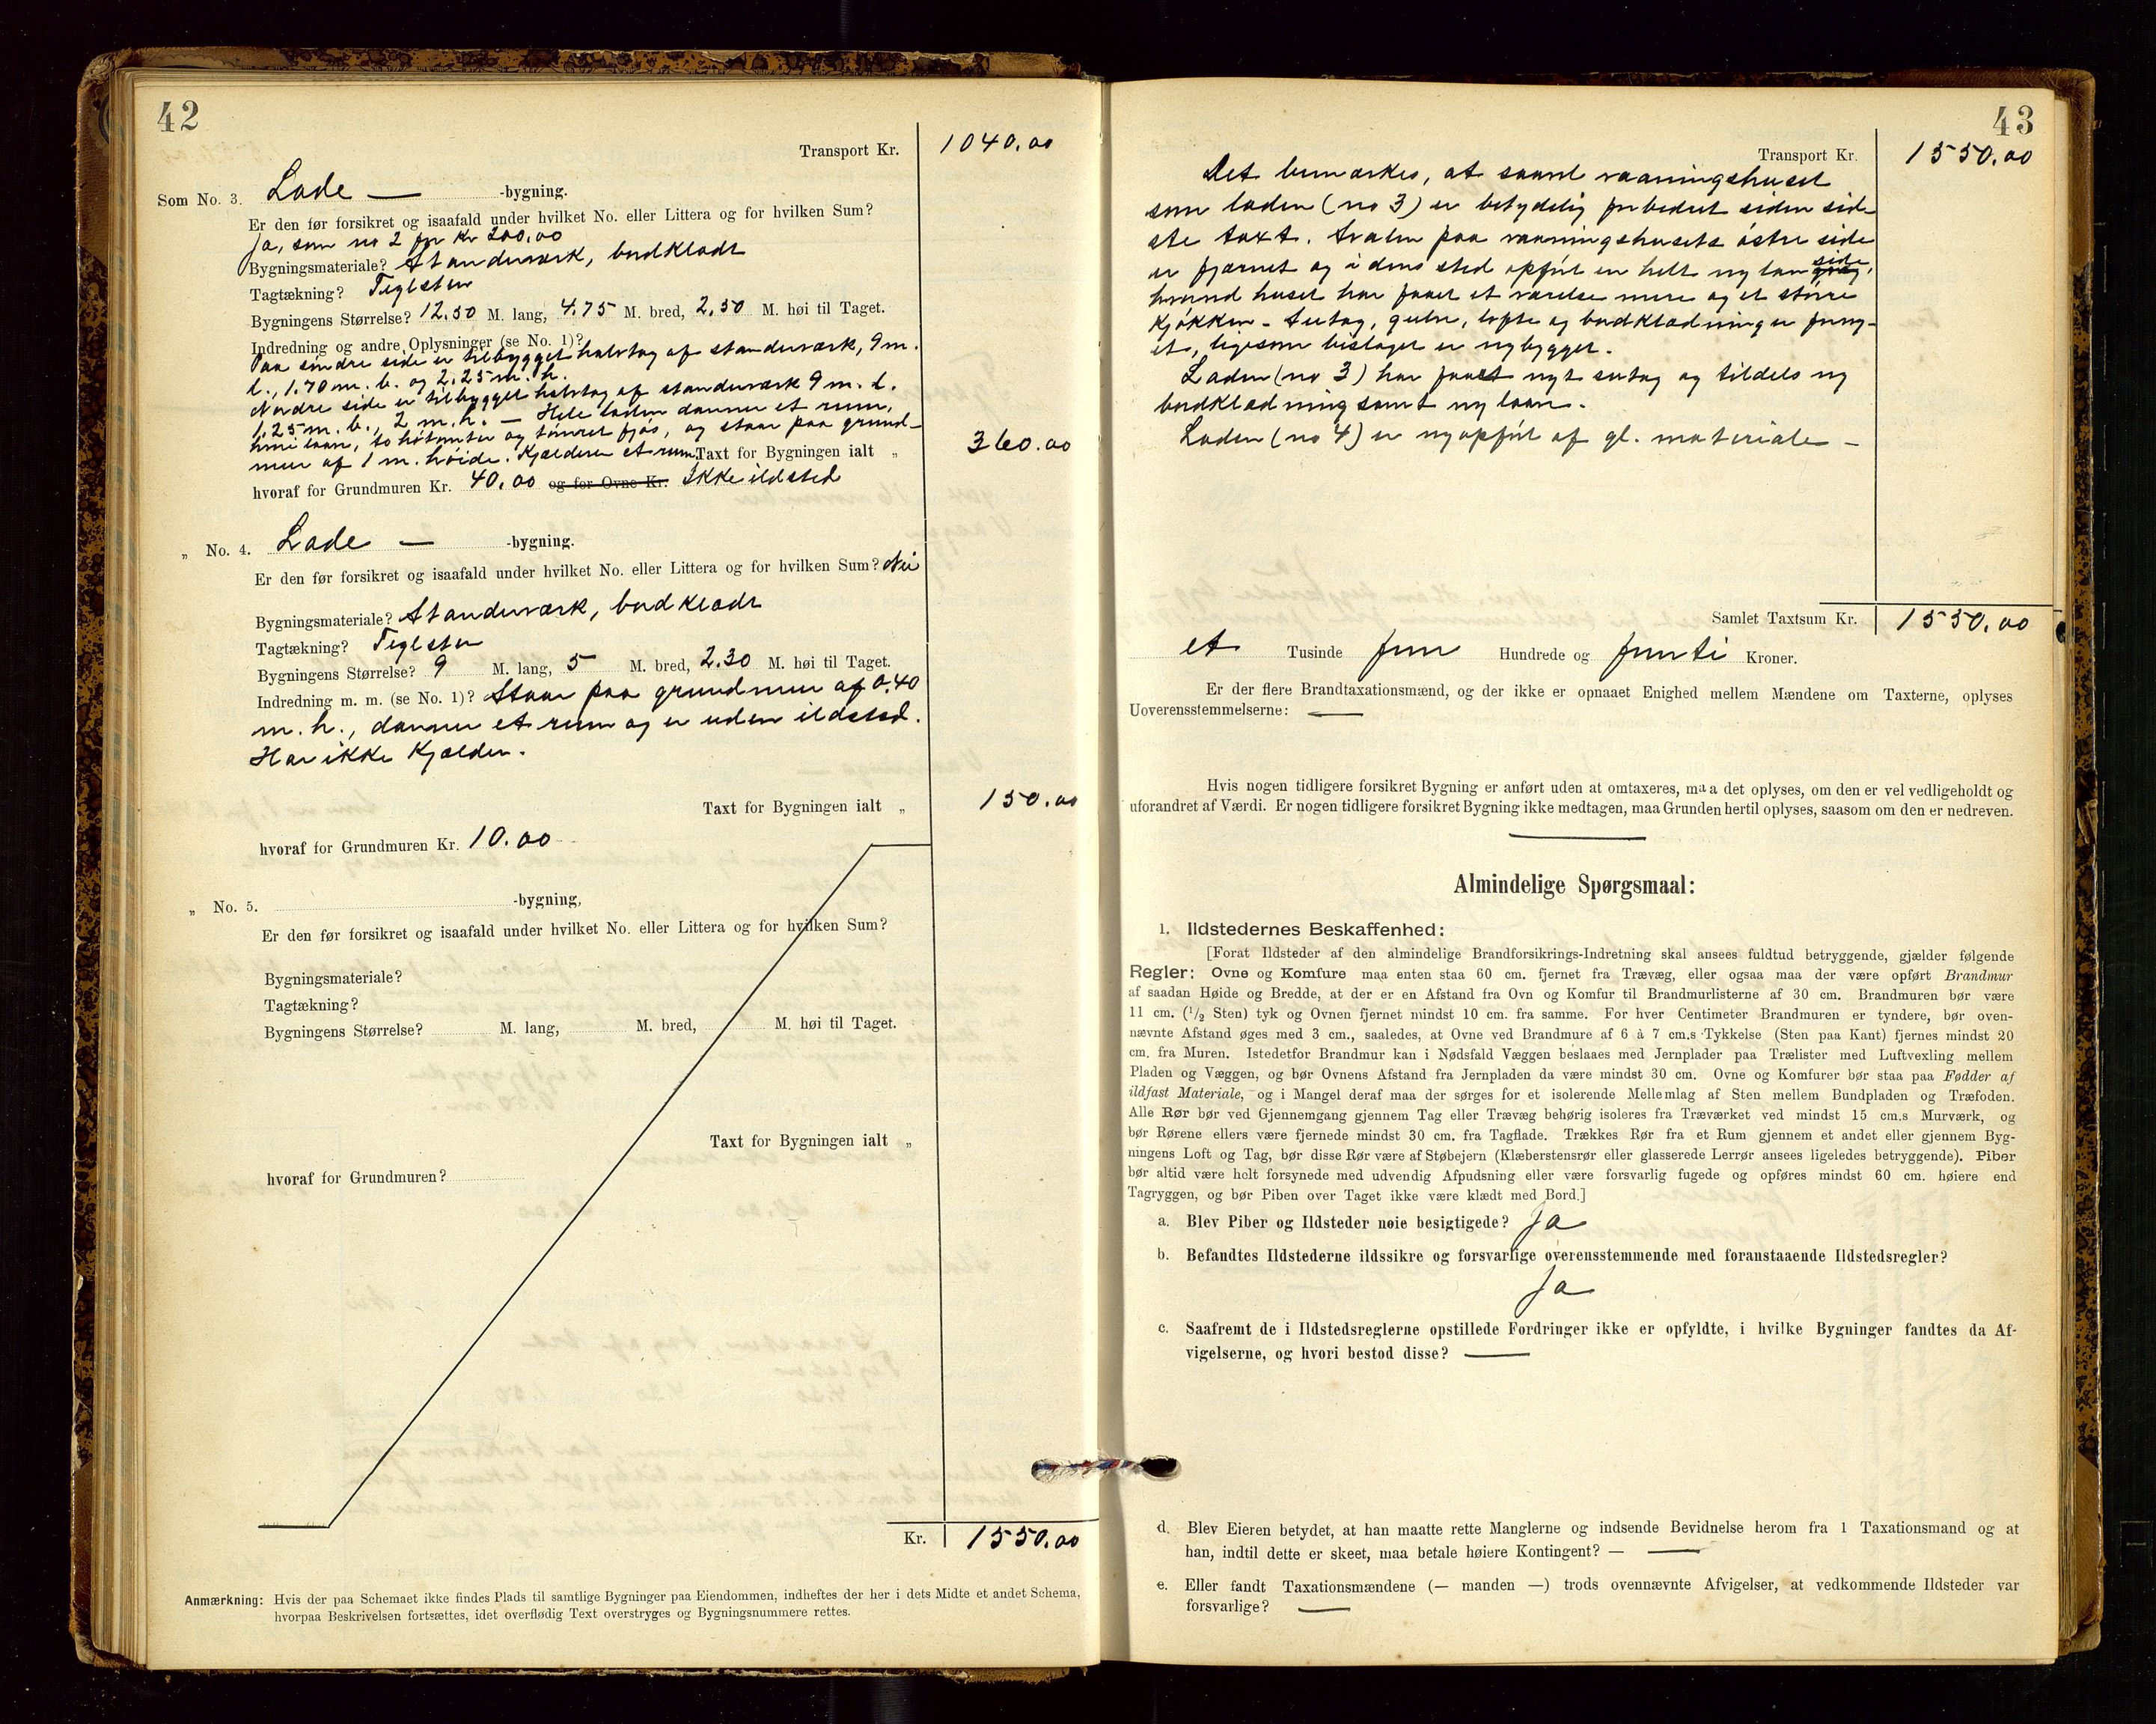 42
Transport Kr. 1040.00
Som No. 3. Lade — -bygning.
Er den før forsikret og isaafald under hvilket No. eller Littera og for hvilken Sum?
Ja, som no 2 for kr 200.00
Bygningsmateriale? Standerværk, bordklædt
Tagtækning? Teglsten
Bygningens Størrelse? 12.50 M. lang, 4.75 M. bred, 2,50 M. høi til Taget.
Indredning og andre Oplysninger (se No. 1)?
Paa søndre side er tilbygget halvtag af standerværk, 9 m.
l., 1.70 m. b. og 2.25 m. h.
Nordre side er tilbygget halvtag af standerværk 9 m. l.
1.25 m. b., 2 m. h. — Hele laden danner et rum,
laan, to høtomter og tømret fjøs, og staar paa grund-
mur af 1 m. høide. Kjælderen et rum. Taxt for Bygningen ialt „ 360.00
hvoraf for Grundmuren Kr. 40.00 og for Ovne Kr. Ikke ildsted
„ No. 4. Lade — -bygning.
Er den før forsikret og isaafald under hvilket No. eller Littera og for hvilken Sum? Nei
Bygningsmateriale? Standerværk, bordklædt
Tagtækning? Teglsten
Bygningens Størrelse? 9 M. lang, 5 M. bred, 2.30 M. høi til Taget.
Indredning m. m. (se No. 1)? Staar paa grundmur af 0.40
m. h., danner et rum og er uden ildsted.
Har ikke Kjælder.
Taxt for Bygningen ialt „ 150.00
hvoraf for Grundmuren Kr. 10.00
„ No. 5. -bygning,
Er den før forsikret og isaafald under hvilket No. eller Littera og for hvilken Sum?
Bygningsmateriale?
Tagtækning?
Bygningens Størrelse? M. lang, M. bred, M. høi til Taget.
Taxt for Bygningen ialt „
hvoraf for Grundmuren?
Kr. 1550.00
Anmærkning: Hvis der paa Schemaet ikke findes Plads til samtlige Bygninger paa Eiendommen, indheftes der her i dets Midte et andet Schema,
hvorpaa Beskrivelsen fortsættes, idet overflødig Text overstryges og Bygningsnummere rettes.
43
Transport Kr. 1550.00
Det bemærkes, at saavel vaaningshuset
som laden (no 3) er betydelig forbedret siden sid-
ste taxt. Svalen paa vaaningshusets østre side
er fjærnet og i dens sted opført en helt ny lang side,
hvorved huset har faaet et værelse mere og et større
kjøkken – Sutag, gulve, lofte og bordklædning er forny-
et, ligesom bislaget er nybygget.
Laden (no 3) har faaet nyt sutag og tildels ny
bordklædning samt ny laan.
Laden (no 4) er nyopført af gl. materiale –
Samlet Taxtsum Kr. 1550.00
et Tusinde fem Hundrede og femti Kroner.
Er der flere Brandtaxationsmænd, og der ikke er opnaaet Enighed mellem Mændene om Taxterne, oplyses
Uoverensstemmelserne: —
Hvis nogen tidligere forsikret Bygning er anført uden at omtaxeres, maa det oplyses, om den er vel vedligeholdt og
uforandret af Værdi. Er nogen tidligere forsikret Bygning ikke medtagen, maa Grunden hertil oplyses, saasom om den er nedreven.
Almindelige Spørgsmaal:
1. Ildstedernes Beskaffenhed:
[Forat Ildsteder af den almindelige Brandforsikrings-Indretning skal ansees fuldtud betryggende, gjælder følgende
Regler: Ovne og Komfure maa enten staa 60 cm. fjernet fra Trævæg, eller ogsaa maa der være opført Brandmur
af saadan Høide og Bredde, at der er en Afstand fra Ovn og Komfur til Brandmurlisterne af 30 cm. Brandmuren bør være
11 cm. (1/2 Sten) tyk og Ovnen fjernet mindst 10 cm. fra samme. For hver Centimeter Brandmuren er tyndere, bør oven-
nævnte Afstand øges med 3 cm., saaledes, at Ovne ved Brandmure af 6 à 7 cm.s Tykkelse (Sten paa Kant) fjernes mindst 20
cm. fra Muren. Istedetfor Brandmur kan i Nødsfald Væggen beslaaes med Jernplader paa Trælister med Luftvexling mellem
Pladen og Væggen, og bør Ovnens Afstand fra Jernpladen da være mindst 30 cm. Ovne og Komfurer bør staa paa Fødder af
ildfast Materiale, og i Mangel deraf maa der sørges for et isolerende Mellemlag af Sten mellem Bundpladen og Træfoden.
Alle Rør bør ved Gjennemgang gjennem Tag eller Trævæg behørig isoleres fra Træværket ved mindst 15 cm.s Murværk, og
bør Rørene ellers være fjernede mindst 30 cm. fra Tagflade. Trækkes Rør fra et Rum gjennem et andet eller gjennem Byg-
ningens Loft og Tag, bør disse Rør være af Støbejern (Klæberstensrør eller glasserede Lerrør ansees ligeledes betryggende). Piber
bør altid være helt forsynede med udvendig Afpudsning eller være forsvarlig fugede og opføres mindst 60 cm. høiere end
Tagryggen, og bør Piben over Taget ikke være klædt med Bord.]
a. Blev Piber og Ildsteder nøie besigtigede? Ja
b. Befandtes Ildstederne ildssikre og forsvarlige overensstemmende med foranstaaende Ildstedsregler?
Ja
c. Saafremt de i Ildstedsreglerne opstillede Fordringer ikke er opfyldte, i hvilke Bygninger fandtes da Af-
vigelserne, og hvori bestod disse? —
d. Blev Eieren betydet, at han maatte rette Manglerne og indsende Bevidnelse herom fra 1 Taxationsmand og at
han, indtil dette er skeet, maa betale høiere Kontingent? — —
e. Eller fandt Taxationsmændene (— manden —) trods ovennævnte Afvigelser, at vedkommende Ildsteder var
forsvarlige? —